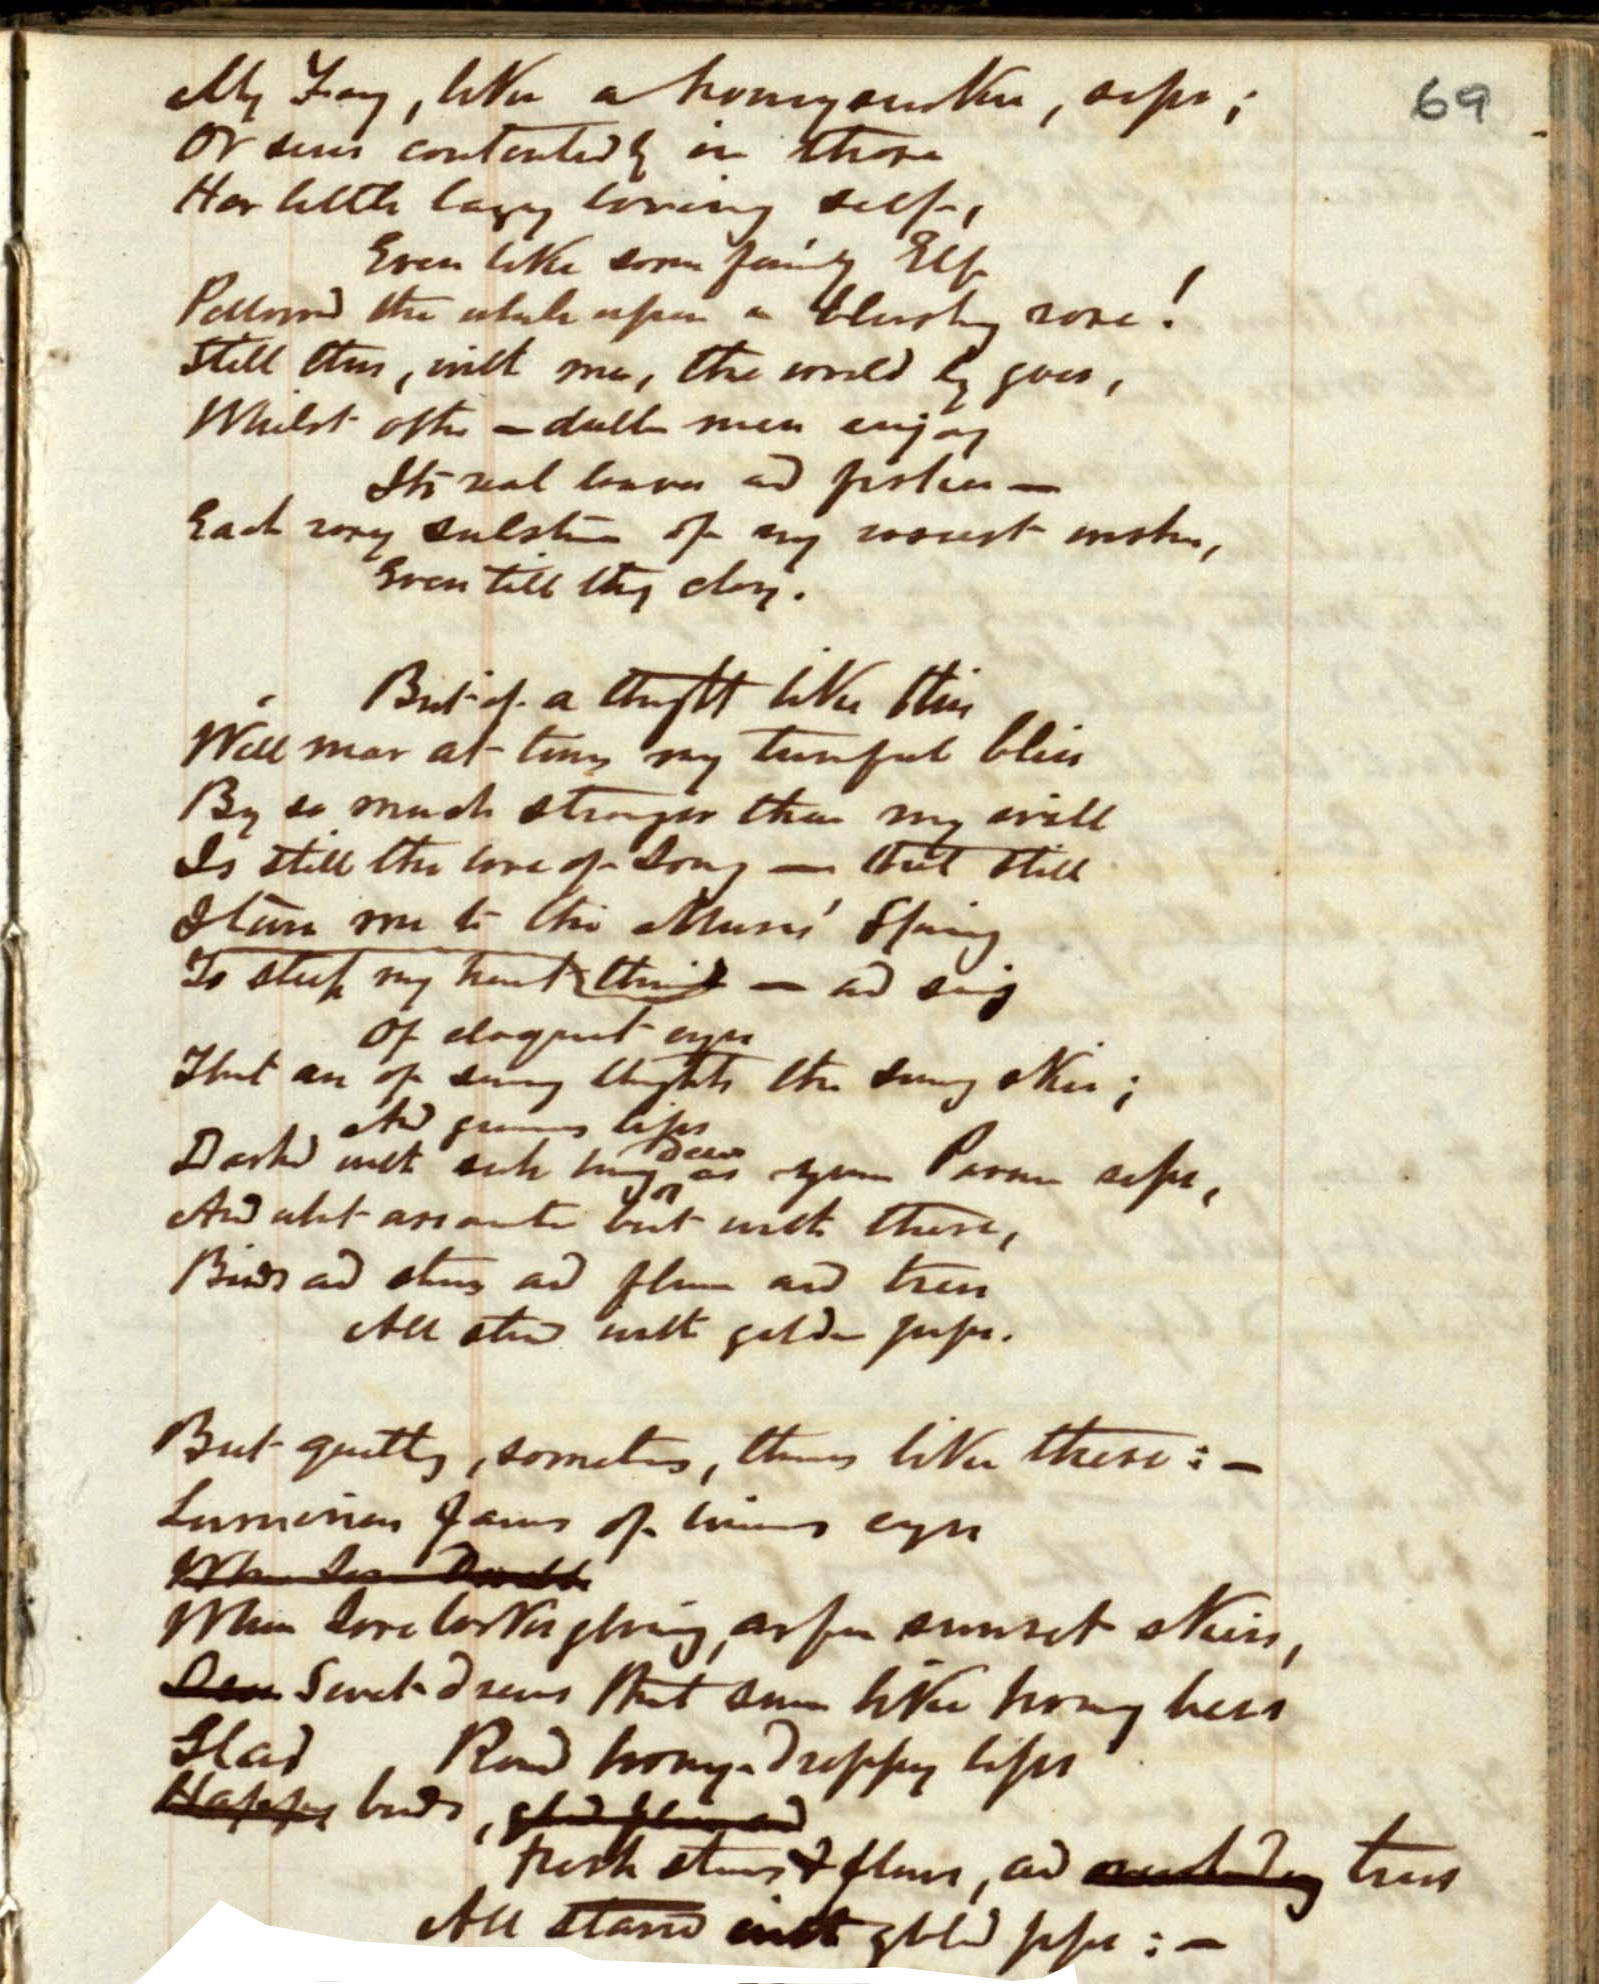 69
My Fay, like a honeysucker, sips;
Or sees contentedly in those
Her little lazy loving self,
Even like some fairy Elf
Pillowed the while upon a blushing rose!
Still thus, with me, the world by goes,
Whilst often-duller men enjoy
Its real loaves and fishes—
Each rosy substance of my rosiest wishes,
Even till this day.
But if a thought like this
Will mar at times my tuneful bliss
By so much stronger than my will
Is still the love of Song — that still
I turn me to the Muses' Spring
To steep my heart therein — and sing
Of eloquent eyes
That are of sunny thoughts the sunny skies;
And generous lips
Dashed with such honey Dew as young Passion sips,
And what associate best with these,
Birds and stars and flowers and trees
All starred with golden pips.
But quietly, sometimes, themes like these:—
Luminous Jaws of eyes
When Love
When Love looks glowing, as from sunset skies,
Sweet dreams that swarm like honey bees
Glad Round honey-droppy lips
Happy birds, glad flowers and
fresh stars & flowers, and trees
All starred with golden pips:—